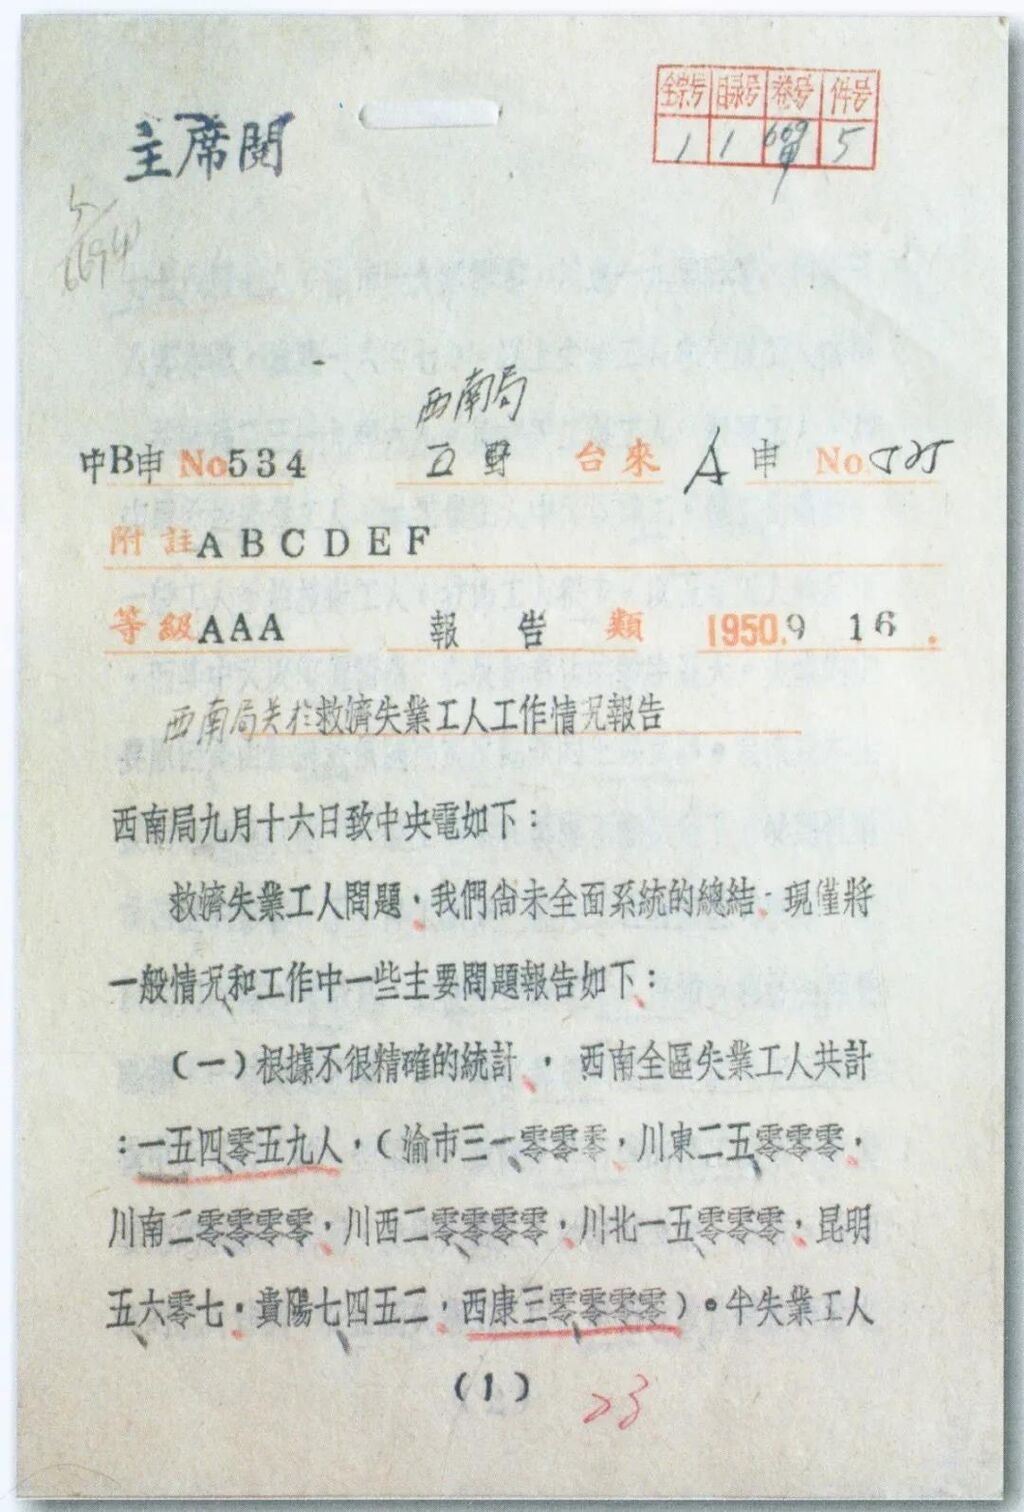 全宗号 目录号 卷号 件号
1 1 669 5
主席閱
西南局
中B申 No534 二野 台來 A 申 No.525
附註ABCDEF
等級AAA 報告類 1950.9 16.
西南局关於救濟失業工人工作情况報告
西南局九月十六日致中央電如下：
救濟失業工人問題，我們尙未全面系統的總結，現僅將
一般情况和工作中一些主要問題報告如下：
（一）根據不很精確的統計，西南全區失業工人共計
：一五四零五九人，（渝市三一零零零，川東二五零零零，
川南二零零零零，川西二零零零零，川北一五零零零，昆明
五六零七，貴陽七四五二，西康三零零零零）。半失業工人
（1）
23